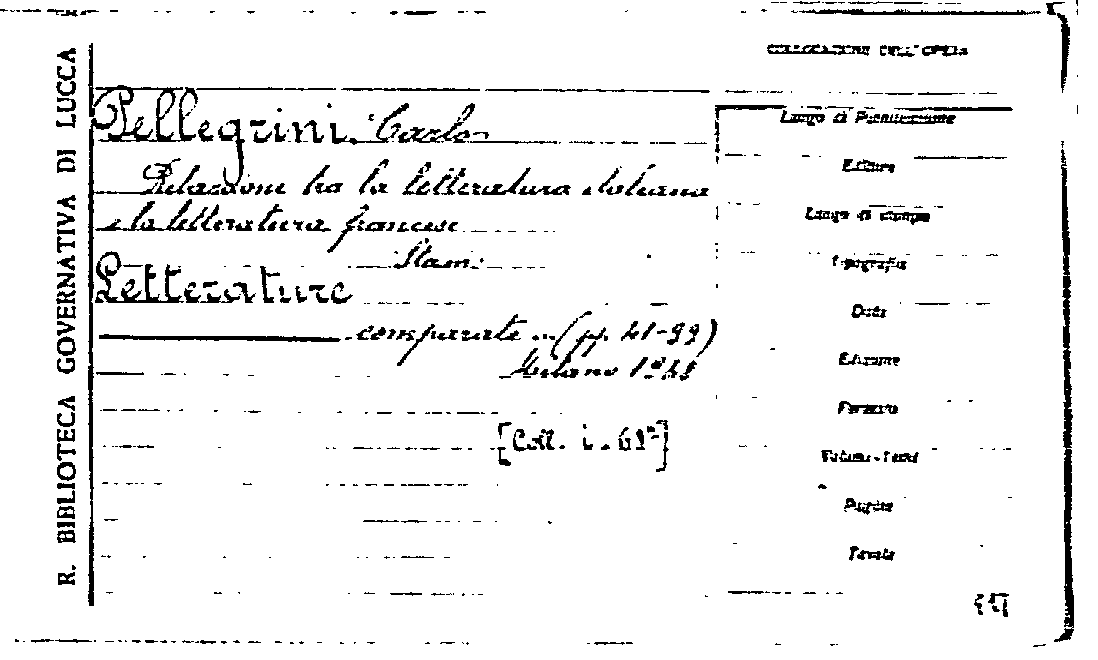 R. BIBLIOTECA GOVERNATIVA DI LUCCA
COLLOCAZIONE DELL'OPERA
Pellegrini Carlo
Relazione tra la letteratura italiana
e la letteratura francese
Letterature
comparate
Milano
[Coll. i.
Luogo di Pubblicazione
Editore
Luogo di stampa
Tipografia
Data
Edizione
Formato
Pagine
Tavole